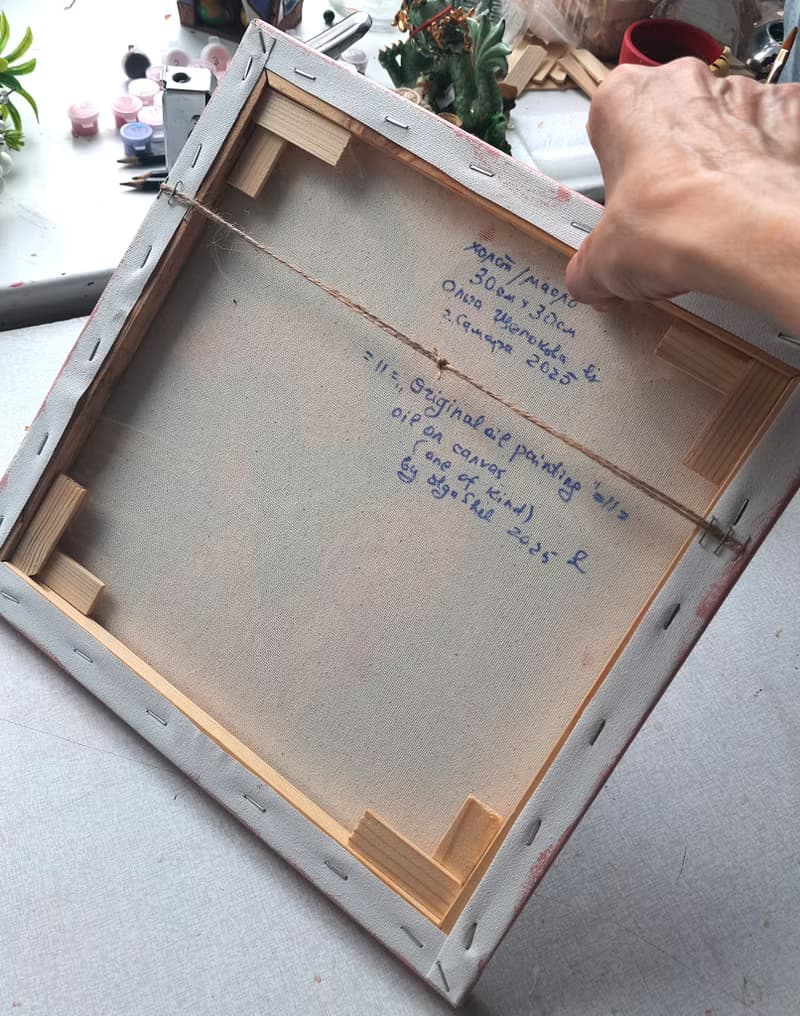 холст/масло
30см х 30см
Ольга Щелокова
г. Самара 2025
=11= „Original oil painting"=11=
oil on canvas
(one of kind)
by Olga Shel 2025